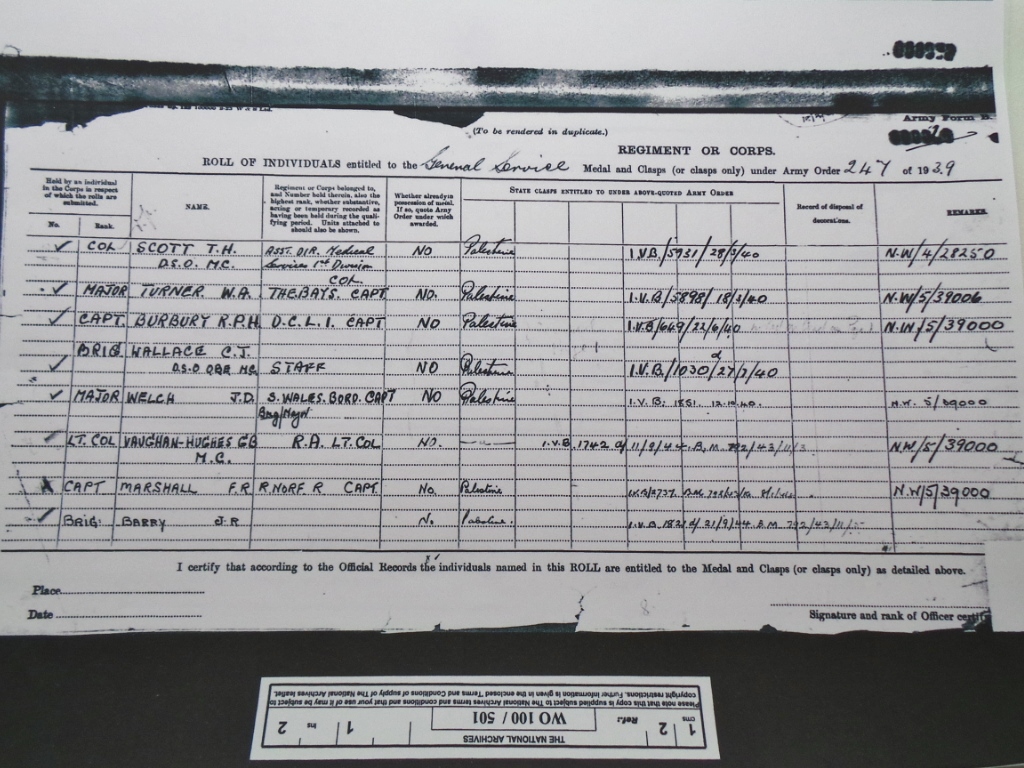 Army Form B.
(To be rendered in duplicate.)
REGIMENT OR CORPS.
ROLL OF INDIVIDUALS entitled to the General Service Medal and Clasps (or clasps only) under Army Order 247 of 1939
Held by an individual in the Corps in respect of which the rolls are submitted.
No. Rank.
NAME.
Regiment or Corps belonged to, and Number held therein, also the highest rank, whether substantive, acting or temporary recorded as having been held during the qualifying period. Units attached to should also be shown.
Whether already in possession of medal. If so, quote Army Order under which awarded.
STATE CLASPS ENTITLED TO UNDER ABOVE-QUOTED ARMY ORDER
Record of disposal of decorations.
REMARKS.
✓ COL SCOTT T.H. ASST. DIR. Medical NO Palestine I.V.B./5931/28/3/40 N.W/4/28250
D.S.O. M.C. Services 1st Division
COL.
✓ MAJOR TURNER W.A. THE BAYS. CAPT NO. Palestine I.V.B/5898/18/3/40 N.W/5/39006
✓ CAPT BURBURY R.P.H D.C.L.I. CAPT NO Palestine I.V.B/649/22/6/40 N.W/5/39000
BRIG WALLACE C.J.
✓ D.S.O OBE MC STAFF NO Palestine I.V.B./1030/27/7/40
✓ MAJOR WELCH J.D. S. WALES. BORD. CAPT NO Palestine I.V.B. 1851. 12.10.40. N.W. 5/39000
Brig/Major
✓ LT. COL VAUGHAN-HUGHES G.B R.A. LT. COL NO. I.V.B. 1742 of 11/9/44. B.M. 792/43/11/ N.W/5/39000
M.C.
CAPT MARSHALL F.R R. NORF. R CAPT. No. Palestine N.W/5/39000
✓ BRIG. BARRY J.R No. Palestine. I.V.B. 182 of 21/9/44 B.M 792/43/11/
I certify that according to the Official Records the individuals named in this ROLL are entitled to the Medal and Clasps (or clasps only) as detailed above.
Place
Date
Signature and rank of Officer
THE NATIONAL ARCHIVES
1 cms 2 Ref.: WO 100 / 501 1 ins 2
Please note that this copy is supplied subject to The National Archives terms and conditions and that your use of it may be subject to copyright restrictions. Further information is given in the enclosed Terms and Conditions of supply of The National Archives leaflet.